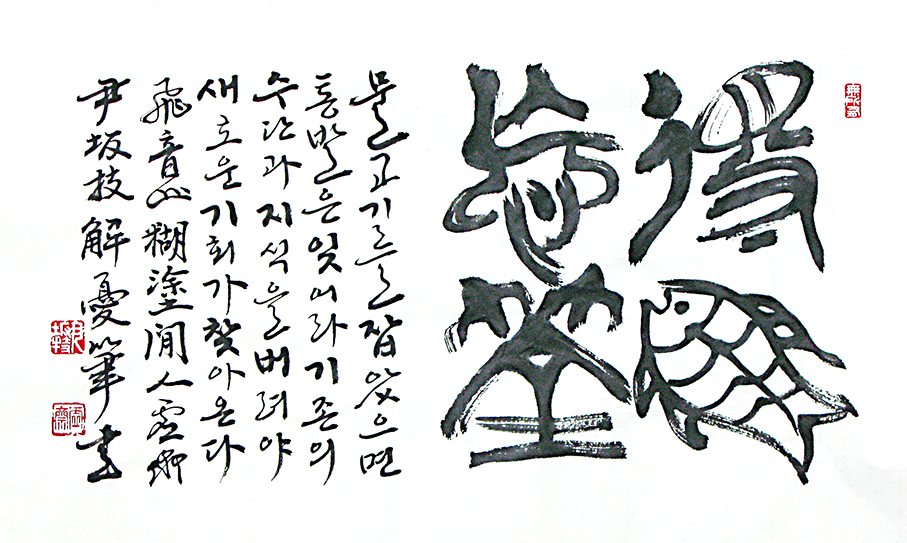 得魚
忘筌
물고기를잡았으면
통발은잊어라기존의
수단과지식을버려야
새로운기회가찾아온다
飛音山糊塗閒人
尹坂技解憂筆書